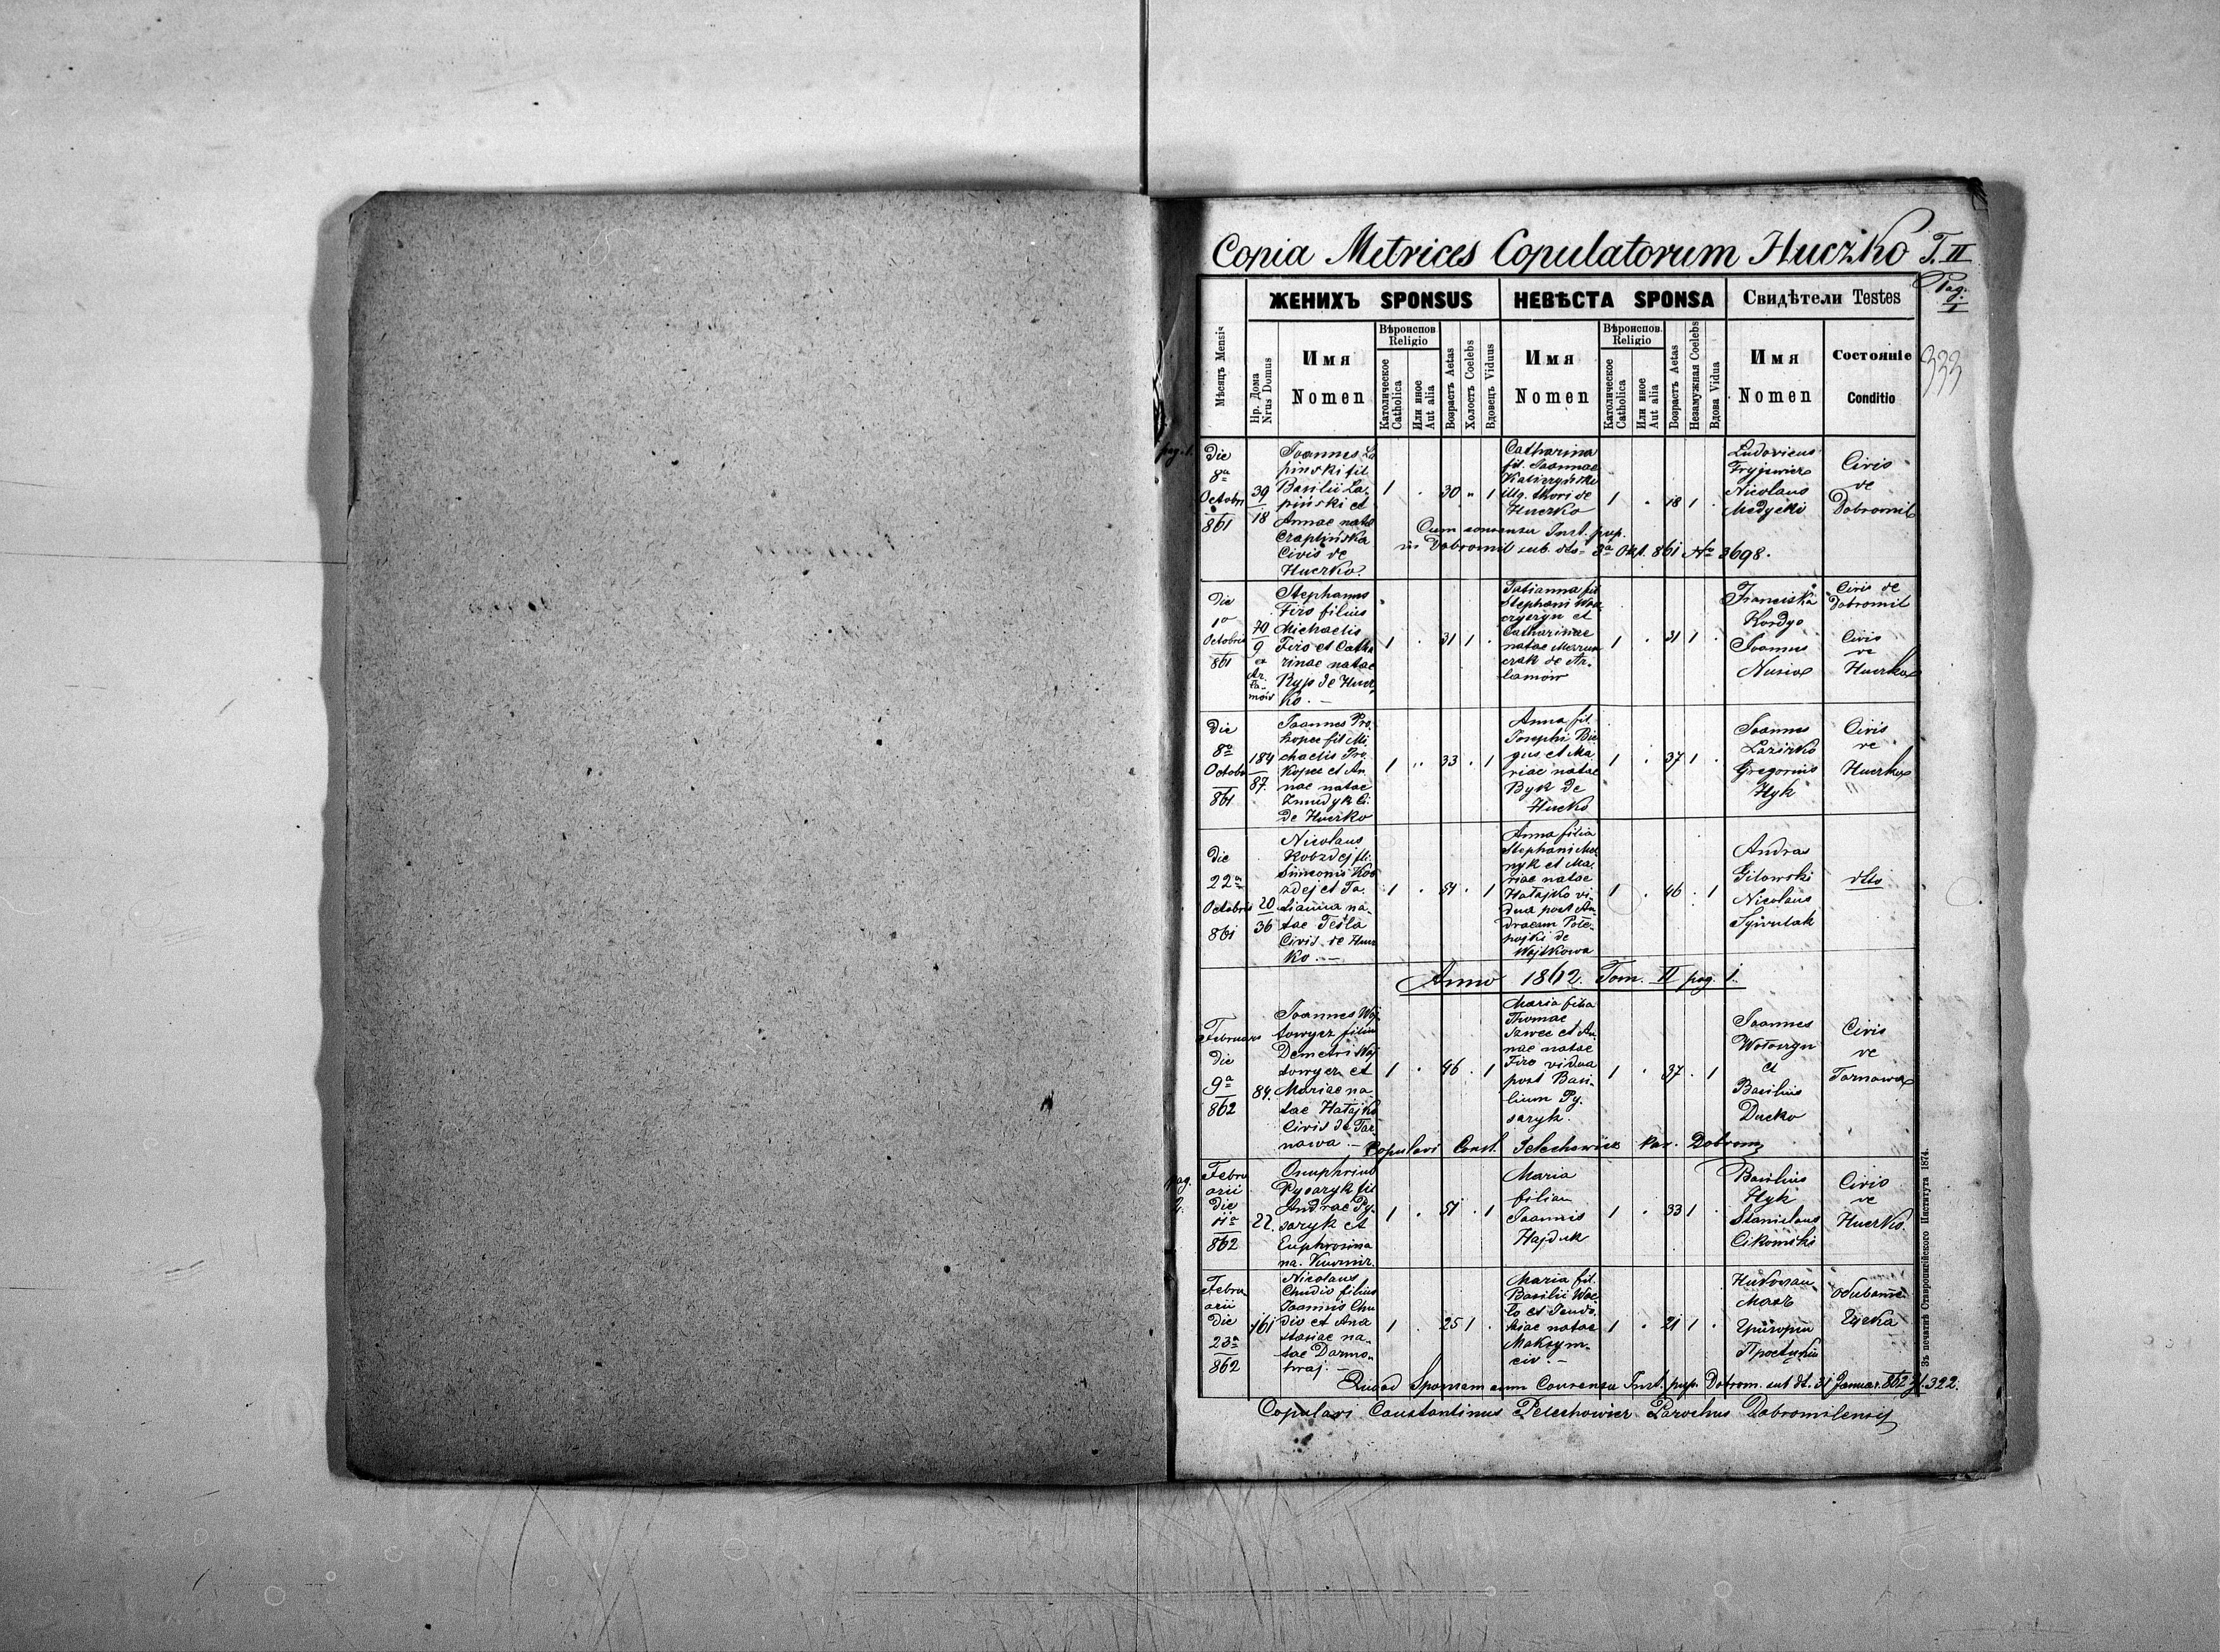 Copia Metrices Copulatorum Huczko T. II
Pag. 1
333
ЖЕНИХЪ SPONSUS
НЕВѢСТА SPONSA
Свидѣтели Testes
Мѣсяцъ Mensis
Нр. Дома
Nrus Domus
Имя
Nomen
Вѣроиспов.
Religio
Католическое
Catholica
Или иное
Aut alia
Возрастъ Aetas
Холостъ Coelebs
Вдовецъ Viduus
Имя
Nomen
Вѣроиспов.
Religio
Католическое
Catholica
Или иное
Aut alia
Возрастъ Aetas
Незамужная Coelebs
Вдова Vidua
Имя
Nomen
Состояніе
Conditio
pag. 1.
Die
8a
Octobri
861
39
18
Joannes La
pinski fil.
Basilii La-
pinski et
Annae nata
Czaplinska
Civis de
Huczko.
1 . 30 " 1
Catharina
fil. Joannae
illg. thori de
Huczko
1 . 18 1
Ludovicus
Nicolaus
Medycki
Civis
de
Dobromil
Cum consensu Inst. pup.
in Dobromil sub. dto 3a Okt. 861 No 3698.
Die
1a
Octobris
861
70
9
ex
Ar-
ła-
mów
Stephanus
Firo filius
Michaelis
Firo et Catha
rinae natae
Kyp de Hucz
ko. —
1 . 31 1 .
Tatianna fil.
Stephani
et
Catharinae
natae
de Ar-
lamow
1 . 31 1 .
Franciska
Kordyo
Joannes
Civis de
Dobromil
Civis
de
Huczko
Die
8a
Octobr
861
184
87.
Joannes Pro
kopec fil. Mi
chaelis Pro
kopec et An
nae natae
Ci.
de Huczko
1 .. 33 . 1
Anna fil.
Josephi Bie
gus et Ma
riae natae
Byk de
Huczko
1 . 37 1 .
Joannes
Lazirko
Gregorius
Hyk
Civis
de
Huczko
Die
22a
Octobris
861
20
36
Nicolaus
Kobzdej fil.
Simeonis Kob
zdej et Ta
tianna na-
tae Tesla
Civis de Hucz
ko. —
1 . 54 . 1
Anna filia
Stephani Mel
nyk et Ma
riae natae
Hatajko vi
dua post An
draeam Pote-
pojki de
Wojtkowa
1 . 46 . 1
Andras
Gilowski
Nicolaus
Sywulak
dtto
Anno 1862. Tom. II pag. 1.
Februar
die
9a
862
84.
Joannes Woj
towycz filius
Demetri Woj
towycz et
Mariae na
tae Hatajko
Civis de Tar
nawa —
1 . 46 . 1
Maria filia
Thomae
Szwec et An
nae natae
Firo vidua
post Basi-
lium Py-
saryk.
1 . 37 . 1
Joannes
Wołoszyn
et
Basilius
Ducko
Civis
de
Tarnawa
Copulavi Const. Pelechowicz Par. Dobrom.
pag.
Febru
arii
Die
11a
862
22.
Onuphrius
Pysaryk fil
Andrae Py-
saryk et
Euphrosina
na.
1 . 51 . 1
Maria
filia
Joannis
Hajduk
1 . 33 1 .
Basilius
Hyk
Stanislaus
Cikowski
Civis
de
Huczko.
Febru
arii
Die
23a
862
161
Nicolaus
Chudio filius
Joannis Chu
dio et Ana
stasiae na-
tae Darmo-
hraj. —
1 . 25 1 .
Maria fil.
Basilii
et
natae
Maksym-
civ. —
1 . 21 1 .
Николаи
Мазъ
Григорш
Quoad Sponsam cum Consensu Inst. pup. Dobrom. sub dt. 31 Januar. 862 Z. 322.
Copulavi Constantinus Pelechowicz Parochus Dobromilensis
Зъ печатнѣ Ставропигійского Института 1874.